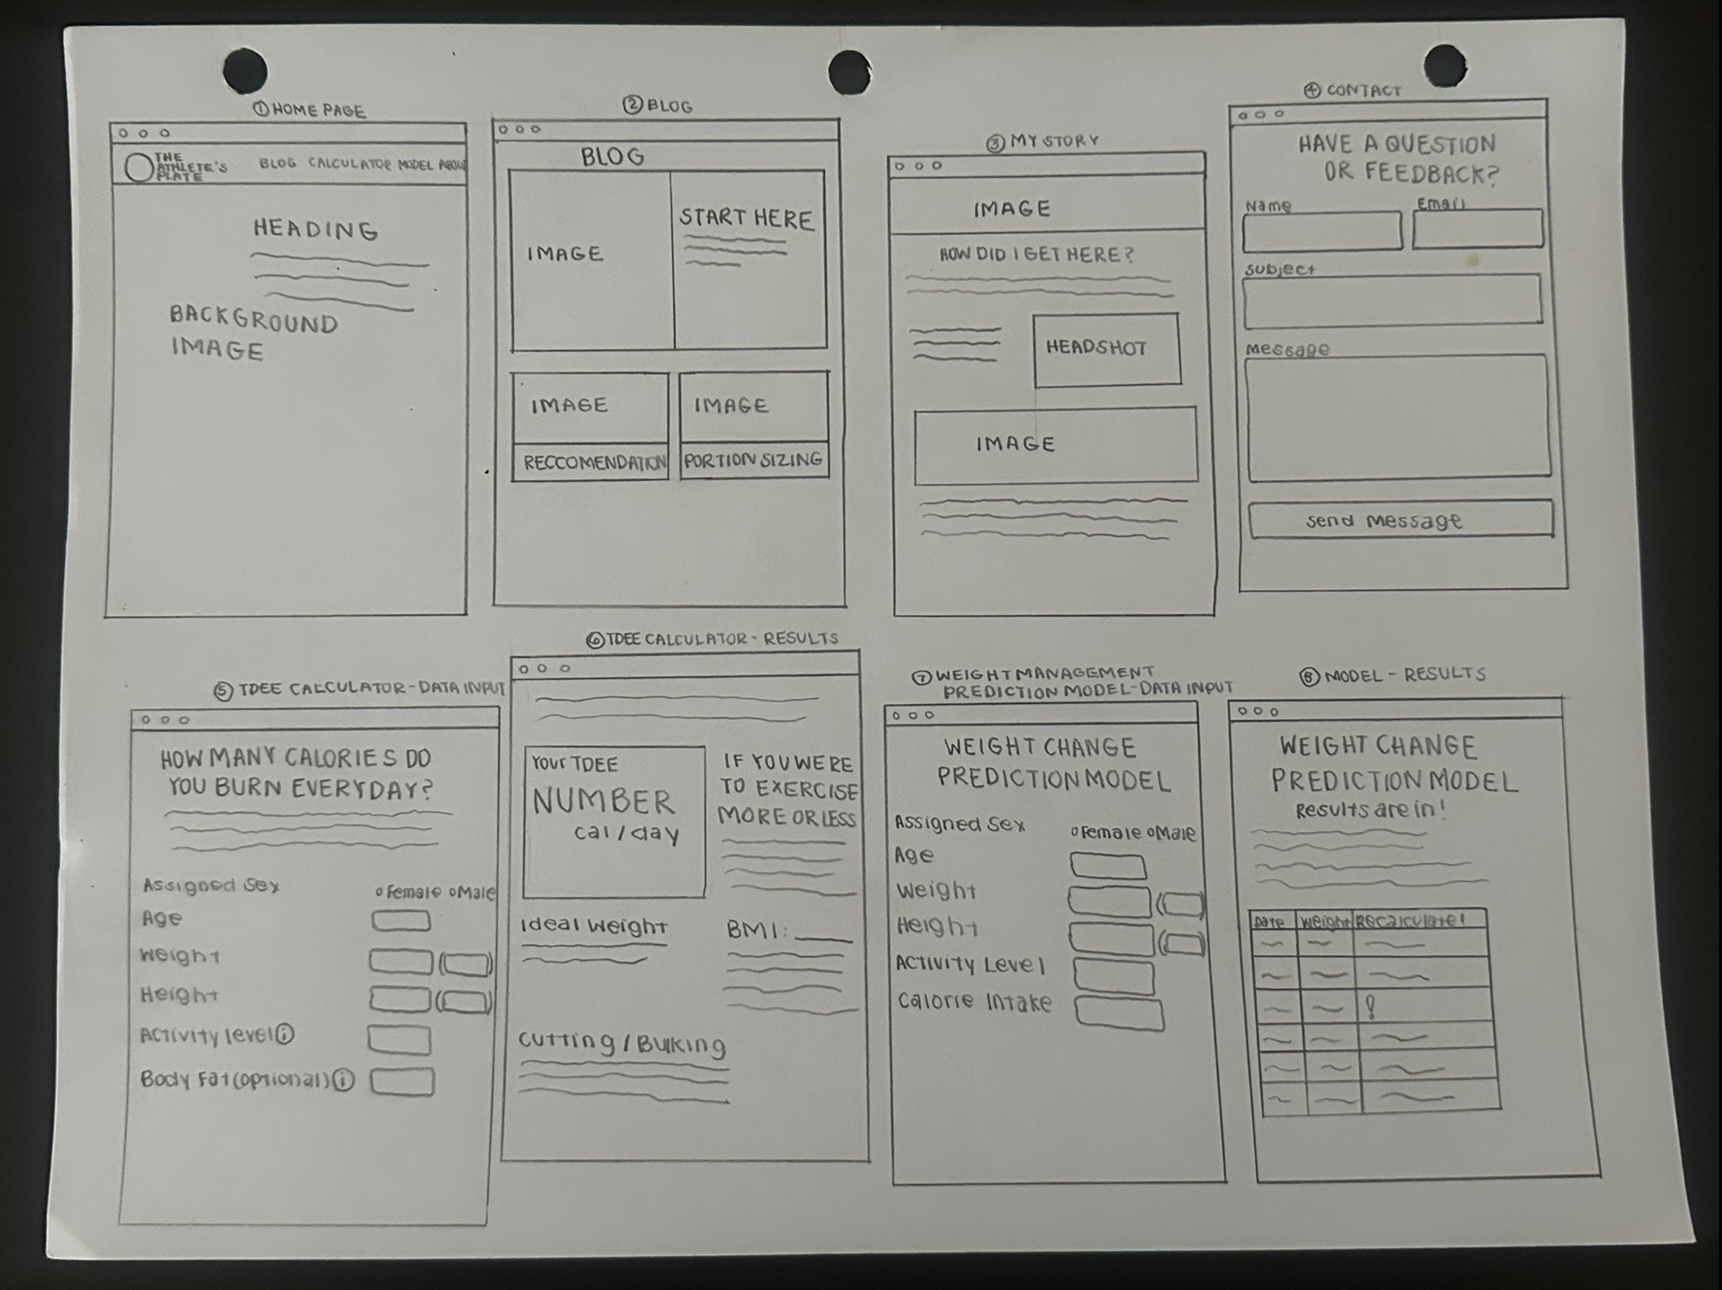 ① HOME PAGE
THE
ATHLETE'S
PLATE
BLOG CALCULATOR MODEL ABOU
HEADING
BACKGROUND
IMAGE
② BLOG
BLOG
IMAGE
START HERE
IMAGE
IMAGE
RECCOMENDATION
PORTION SIZING
③ MY STORY
IMAGE
HOW DID I GET HERE?
HEADSHOT
IMAGE
④ CONTACT
HAVE A QUESTION
OR FEEDBACK?
Name
Email
Subject
Message
Send Message
⑤ TDEE CALCULATOR-DATA INPUT
HOW MANY CALORIES DO
YOU BURN EVERYDAY?
Assigned Sex
Female Male
Age
Weight
Height
Activity level ⓘ
Body Fat (optional) ⓘ
⑥ TDEE CALCULATOR - RESULTS
Your TDEE
NUMBER
cal/day
IF YOU WERE
TO EXERCISE
MORE OR LESS
Ideal Weight
BMI:
Cutting/Bulking
⑦ WEIGHT MANAGEMENT
PREDICTION MODEL-DATA INPUT
WEIGHT CHANGE
PREDICTION MODEL
Assigned Sex
Female Male
Age
Weight
Height
Activity Level
Calorie Intake
⑧ MODEL - RESULTS
WEIGHT CHANGE
PREDICTION MODEL
Results are in!
Date Weight Recalculate!
!